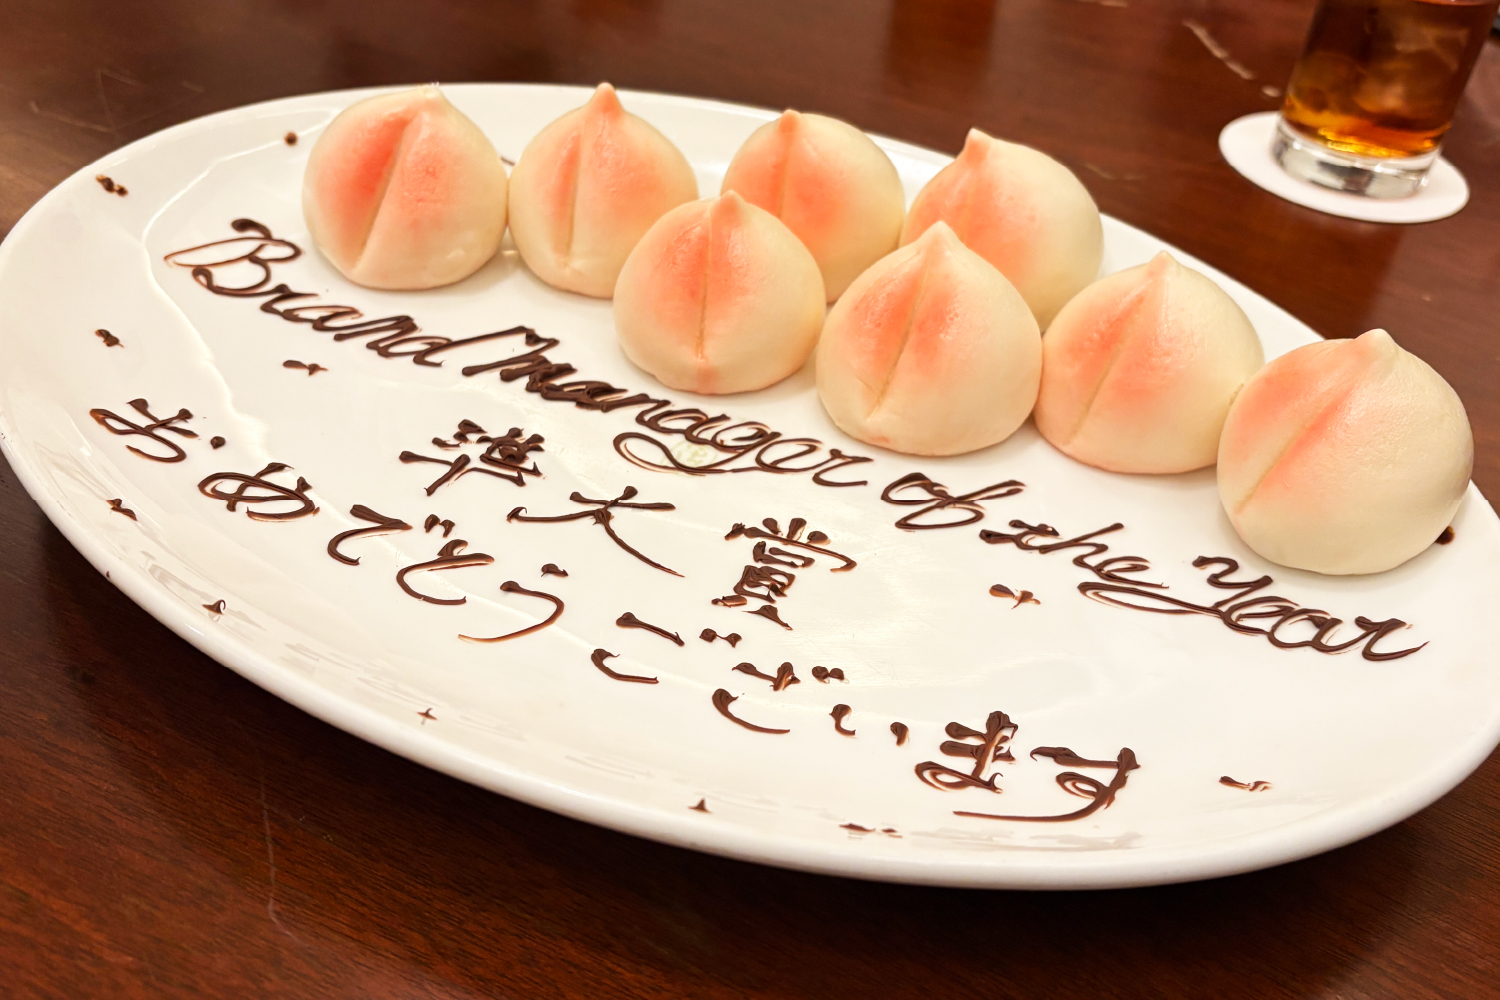 Brand Manager of the Year
準大賞
おめでとうございます